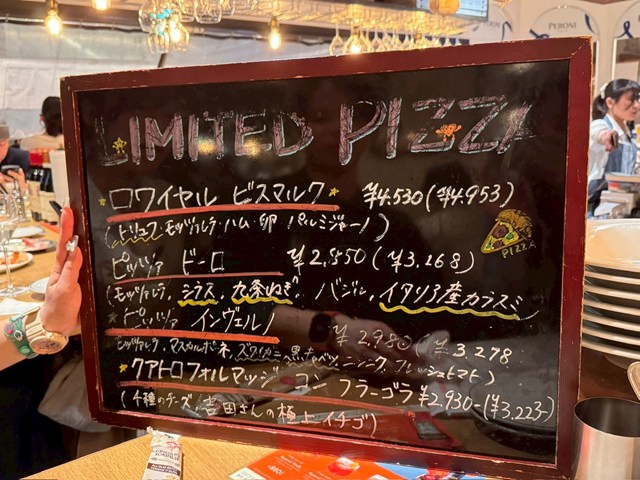 LIMITED PIZZA
ロワイヤル ビスマルク ¥4.530(¥4.953)
(トリュフ・モッツァレラ・ハム・卵 パルミジャーノ)
ピッツァ ビーロ ¥2,880(¥3.168)
(モッツァレラ, シラス, 九条ねぎ, バジル, イタリア産カラスミ)
ピッツァ インヴェルノ ¥2,980(¥3.278
モッツァレラ, マスカルポーネ, 黒キャベツ, ニンニク, フレッシュトマト)
クアトロフォルマッジ コン フラーゴラ ¥2,930-(¥3,223-)
(4種のチーズ, 吉田さんの極上イチゴ)
PIZZA
PERONI